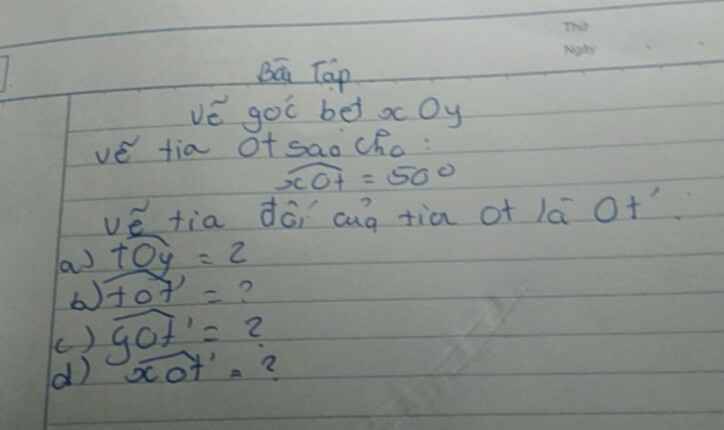 Thứ
Ngày
Bài Tập
Vẽ góc bẹt xOy
Vẽ tia Ot sao cho:
xOt = 50°
Vẽ tia đối của tia Ot là Ot'.
a) tOy = ?
b) tOt' = ?
c) yOt' = ?
d) xOt' = ?